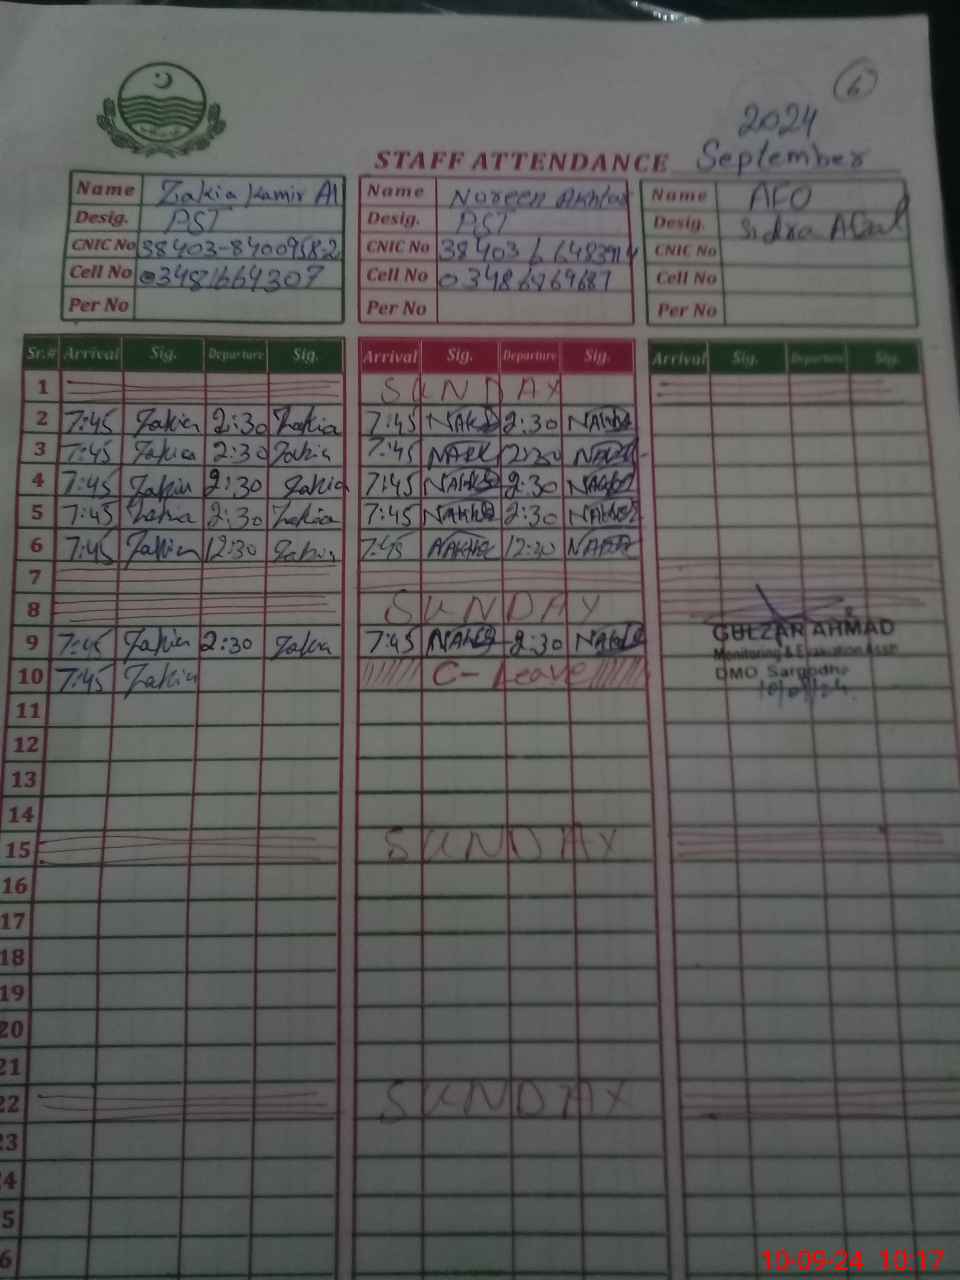 6
2024
STAFF ATTENDANCE September
Name Zakia Kamir Al Name Noreen Akhtar Name AEO
Desig. PST Desig. PST Desig. Sidra Afzal
CNIC No 38403-8400958-2 CNIC No 38403 CNIC No
Cell No 03481664307 Cell No 03486869687 Cell No
Per No Per No Per No
Sr.# Arrival Sig. Departure Sig. Arrival Sig. Departure Sig. Arrival Sig. Departure Sig.
1 SUNDAY
2 7:45 Zakia 2:30 Zakia 7:45 2:30
3 7:45 Zakia 2:30 Zakia 7:45 2:30
4 7:45 Zakia 2:30 Zakia 7:45 2:30
5 7:45 Zakia 2:30 Zakia 7:45 2:30
6 7:45 Zakia 12:30 Zakia 7:45 12:30
7
8 SUNDAY
9 7:45 Zakia 2:30 Zakia 7:45 2:30
GULZAR AHMAD
Monitoring & Evaluation Asstt
10 7:45 Zakia C- Leave
DMO Sargodha
10/09/24
11
12
13
14
15 SUNDAY
16
17
18
19
20
21
22 SUNDAY
23
4
5
6
10-09-24 10:17